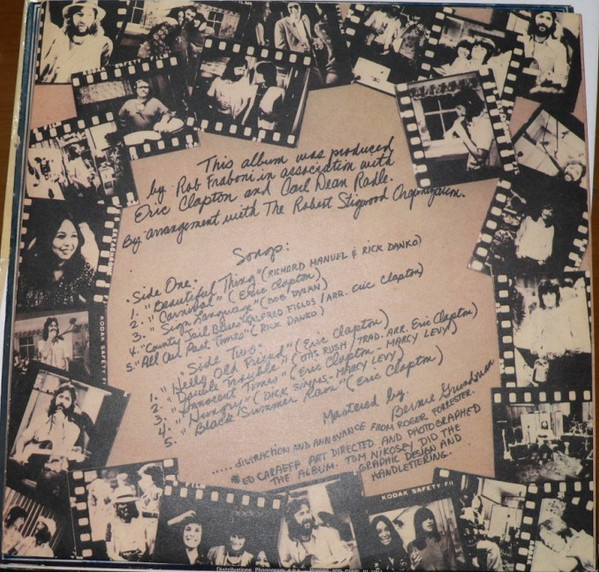 SAFETY FI
This album was produced
by: Rob Fraboni in association with
Eric Clapton and Carl Dean Radle.
By arrangement with The Robert Stigwood Organization.
Songs:
Side One.
1. "Beautiful Thing" (RICHARD MANUEL & RICK DANKO)
2. "Carnival" (Eric Clapton)
3. "Sign Language" (BOB DYLAN)
4. "County Jail Blues" (ALFRED FIELDS / ARR. Eric Clapton)
5. "All Our Past Times" (RICK DANKO)
Side Two.
1. "Hello Old Friend" (Eric Clapton)
2. "Double Trouble" (OTIS RUSH / TRAD. ARR. Eric Clapton)
3. "Innocent Times" (Eric Clapton - MARCY LEVY)
4. "Hungry" (DICK SIMMS - MARCY LEVY)
5. "Black Summer Rain" (Eric Clapton)
Mastered by:
Bernie Grundman
..... DISTRACTION AND ANNOYANCE FROM ROGER FORRESTER.
ED CARAEFF ART DIRECTED AND PHOTOGRAPHED
THE ALBUM. TOM NIKOSEY DID THE
GRAPHIC DESIGN AND
HANDLETTERING.
KODAK SAFETY
KODAK SAFETY FI